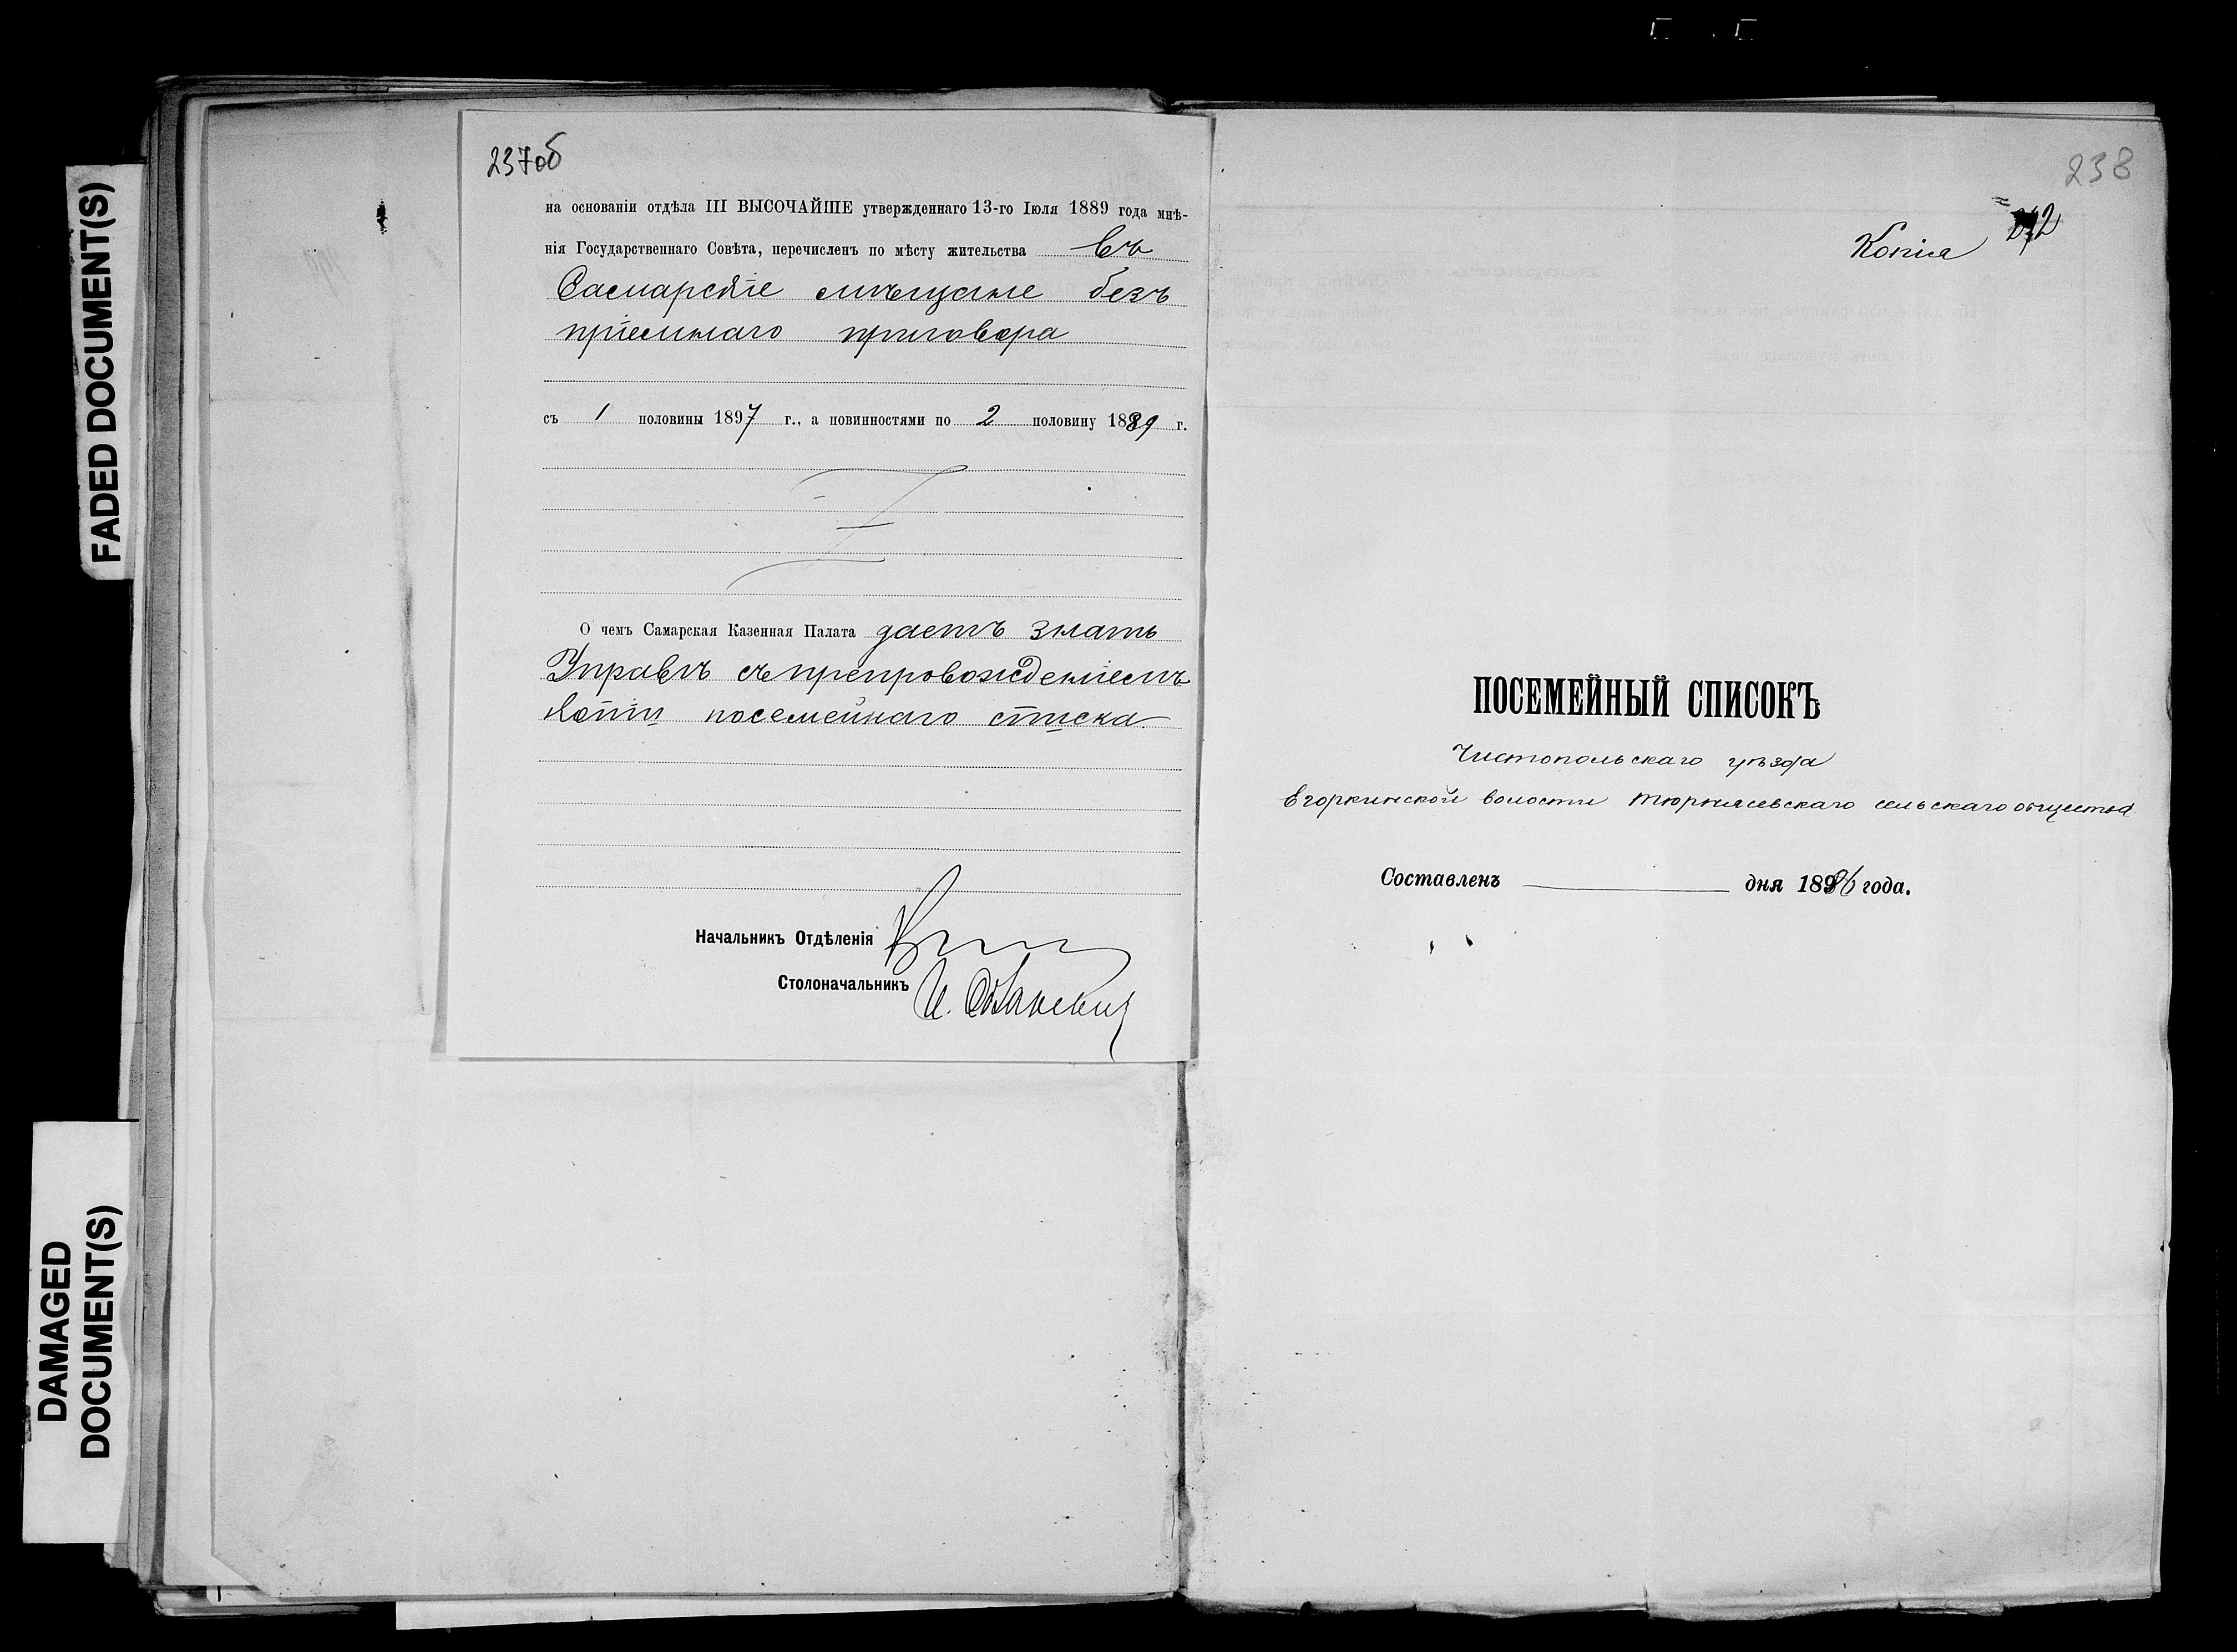 FADED DOCUMENT(S)
DAMAGED
DOCUMENT(S)
237об
на основаніи отдѣла III ВЫСОЧАЙШЕ утвержденнаго 13-го Іюля 1889 года мнѣ-
нія Государственнаго Совѣта, перечисленъ по мѣсту жительства въ
Самарскіе мѣщане безъ
пріемнаго приговора
съ 1 половины 1897 г., а повинностями по 2 половину 1899 г.
О чемъ Самарская Казенная Палата даетъ знать
Управѣ съ препровожденіемъ
копіи посемейнаго списка
Начальникъ Отдѣленія
Столоначальникъ И.
238
Копія
ПОСЕМЕЙНЫЙ СПИСОКЪ
Чистопольскаго уѣзда
Егоркинской волости Тюрнясевскаго сельскаго общества
Составленъ дня 1886 года.